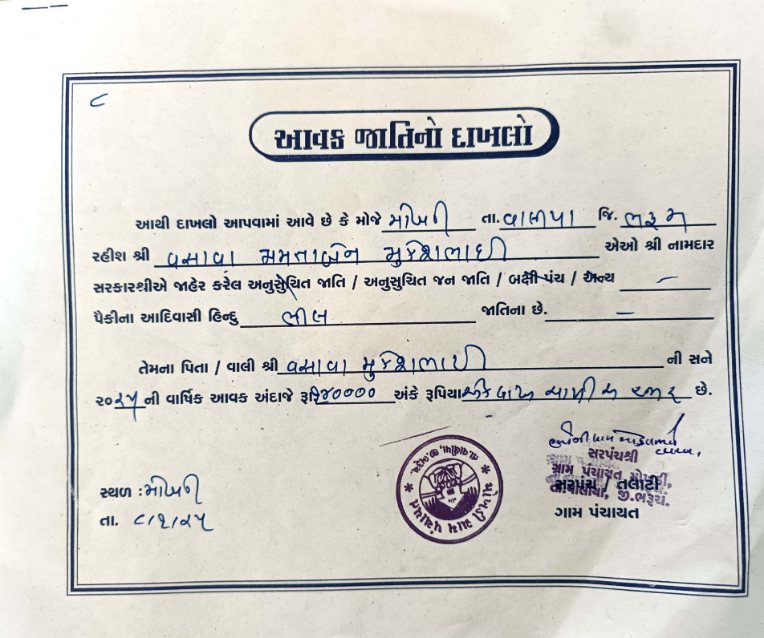 ૮
આવક જાતિનો દાખલો
આથી દાખલો આપવામાં આવે છે કે મોજે મોખડી તા. વાલીયા જિ. ભરૂચ
રહીશ શ્રી વસાવા મમતાબેન મુકેશભાઈ એઓ શ્રી નામદાર
સરકારશીએ જાહેર કરેલ અનુસુચિત જાતિ / અનુસુચિત જન જાતિ / બક્ષી પંચ / અન્ય –
પૈકીના આદિવાસી હિન્દુ ભીલ જાતિના છે. –
તેમના પિતા / વાલી શ્રી વસાવા મુકેશભાઈ ની સને
૨૦૨૫ ની વાર્ષિક આવક અંદાજે રૂ ૧૪૦૦૦૦ અંકે રૂપિયા એક લાખ ચાળીસ હજાર છે.
સરપંચશ્રી
ગ્રામ પંચાયત મોખડી,
સરપંચ / તલાટી
તા.વાલીયા, જી.ભરૂચ.
ગામ પંચાયત
સ્થળ : મોખડી
તા. ૮/૧/૨૫
મોખડી ગ્રામ પંચાયત
તા. વાલીયા, જી. ભરૂચ.